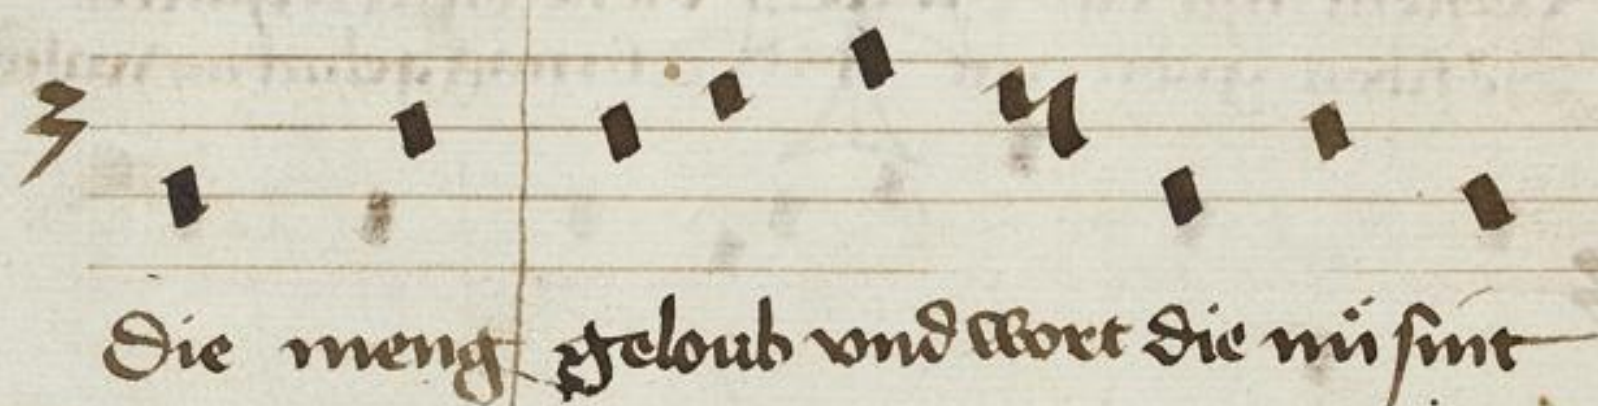 Die meng geloub vnd wort die nü sint